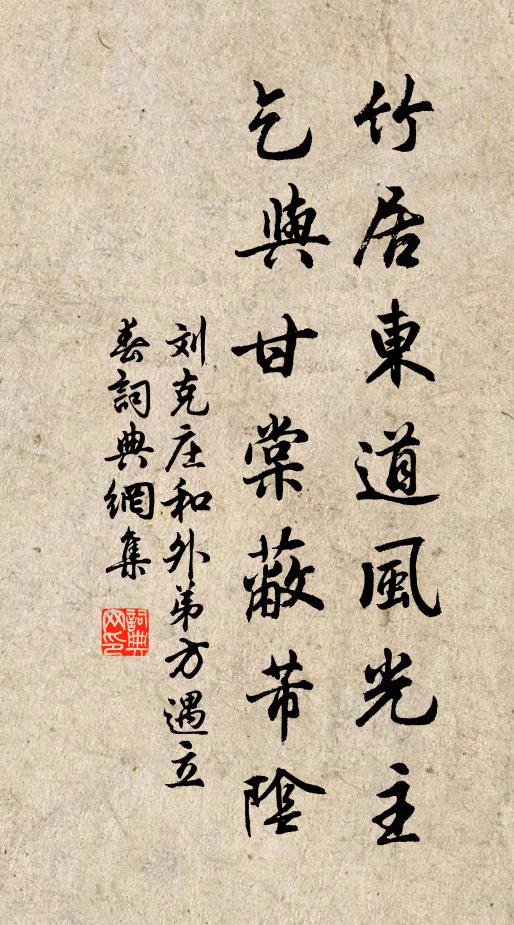 竹居東道風光主
乞與甘棠蔽芾陰
刘克庄和外弟方遇立
春詞典網集
詞典
网印